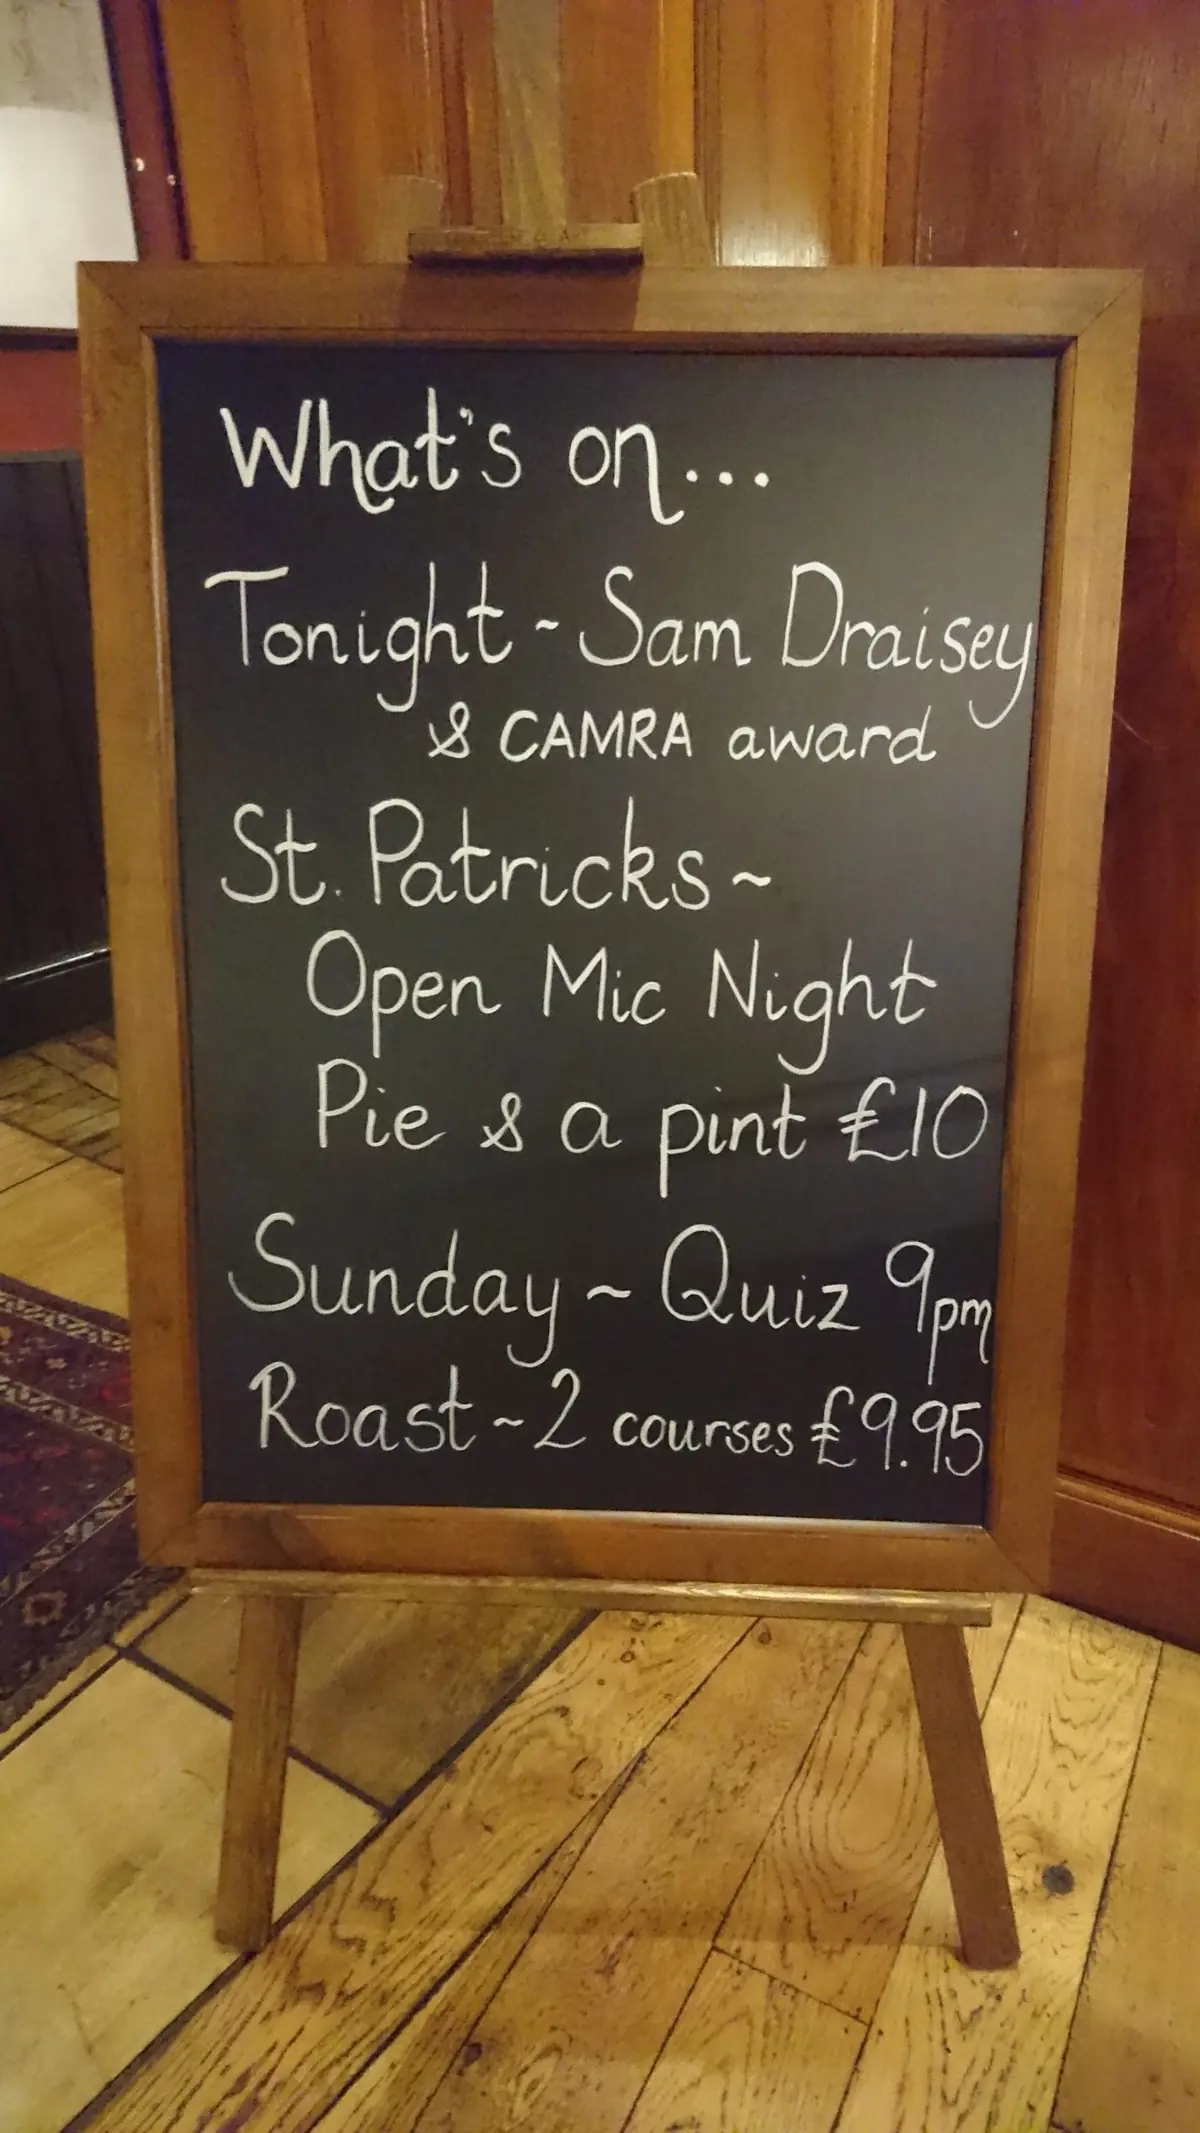 What's on...
Tonight ~ Sam Draisey
& CAMRA award
St. Patricks ~
Open Mic Night
Pie & a pint £10
Sunday ~ Quiz 9pm
Roast ~ 2 courses £9.95